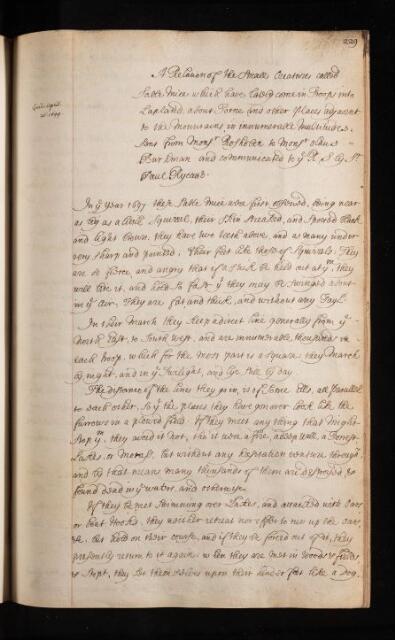 229
A Relation of the Small Creatures called
Sable Mice which have lately come in Troops into
Lapland, about Torne and other Places adjacent
to the Mountains in innumerable multitudes.
Sent from Monsr to Monsr
and communicated to ye R. S. by Sr
Paul Rycaut.
In ye Year 1697 these Sable Mice were first observed, being near
as big as a Small Squirrel, their Skin Streaked, and Spotted Black
and light brown, they have two teeth above, and as many under
very Sharp and pointed, their feet like those of Squirrels. They
are so fierce, and angry that if a Stick be held out at ym, they
will bite it, and hold So fast yt they may be Swinged about
in ye air. They are fat and thick, and without any Tayl.
In their March they keep a direct line generally from ye
North East, to South West, and are innumerable, thousands in
each troop, which for the most part is a Square they March
by night, and in ye Twilight, and lye Still by day
The distance of the lines they go in, is of Some Ells, all Parallel
to each other, So yt the places they have gon over look like the
furrows in a plowed field. If they meet any thing that Might
Stop ym, they avoid it not, tho it were a fire, a deep well, a Torrent
Lake, or Morass, but without any hesitation venture through
and by that means many thousands of them are destroyed &
found dead in ye waters, and otherwise.
If they be met Swimming over Lakes, and attacked with Oars
or boat Hooks, they neither retreat nor offer to run up the Oars,
&c. but hold on their course, and if they be forced out of it, they
presently return to it again: when they are met in woods or fields
& Stopt, they Set themselves upon their hinder feet like a Dog,